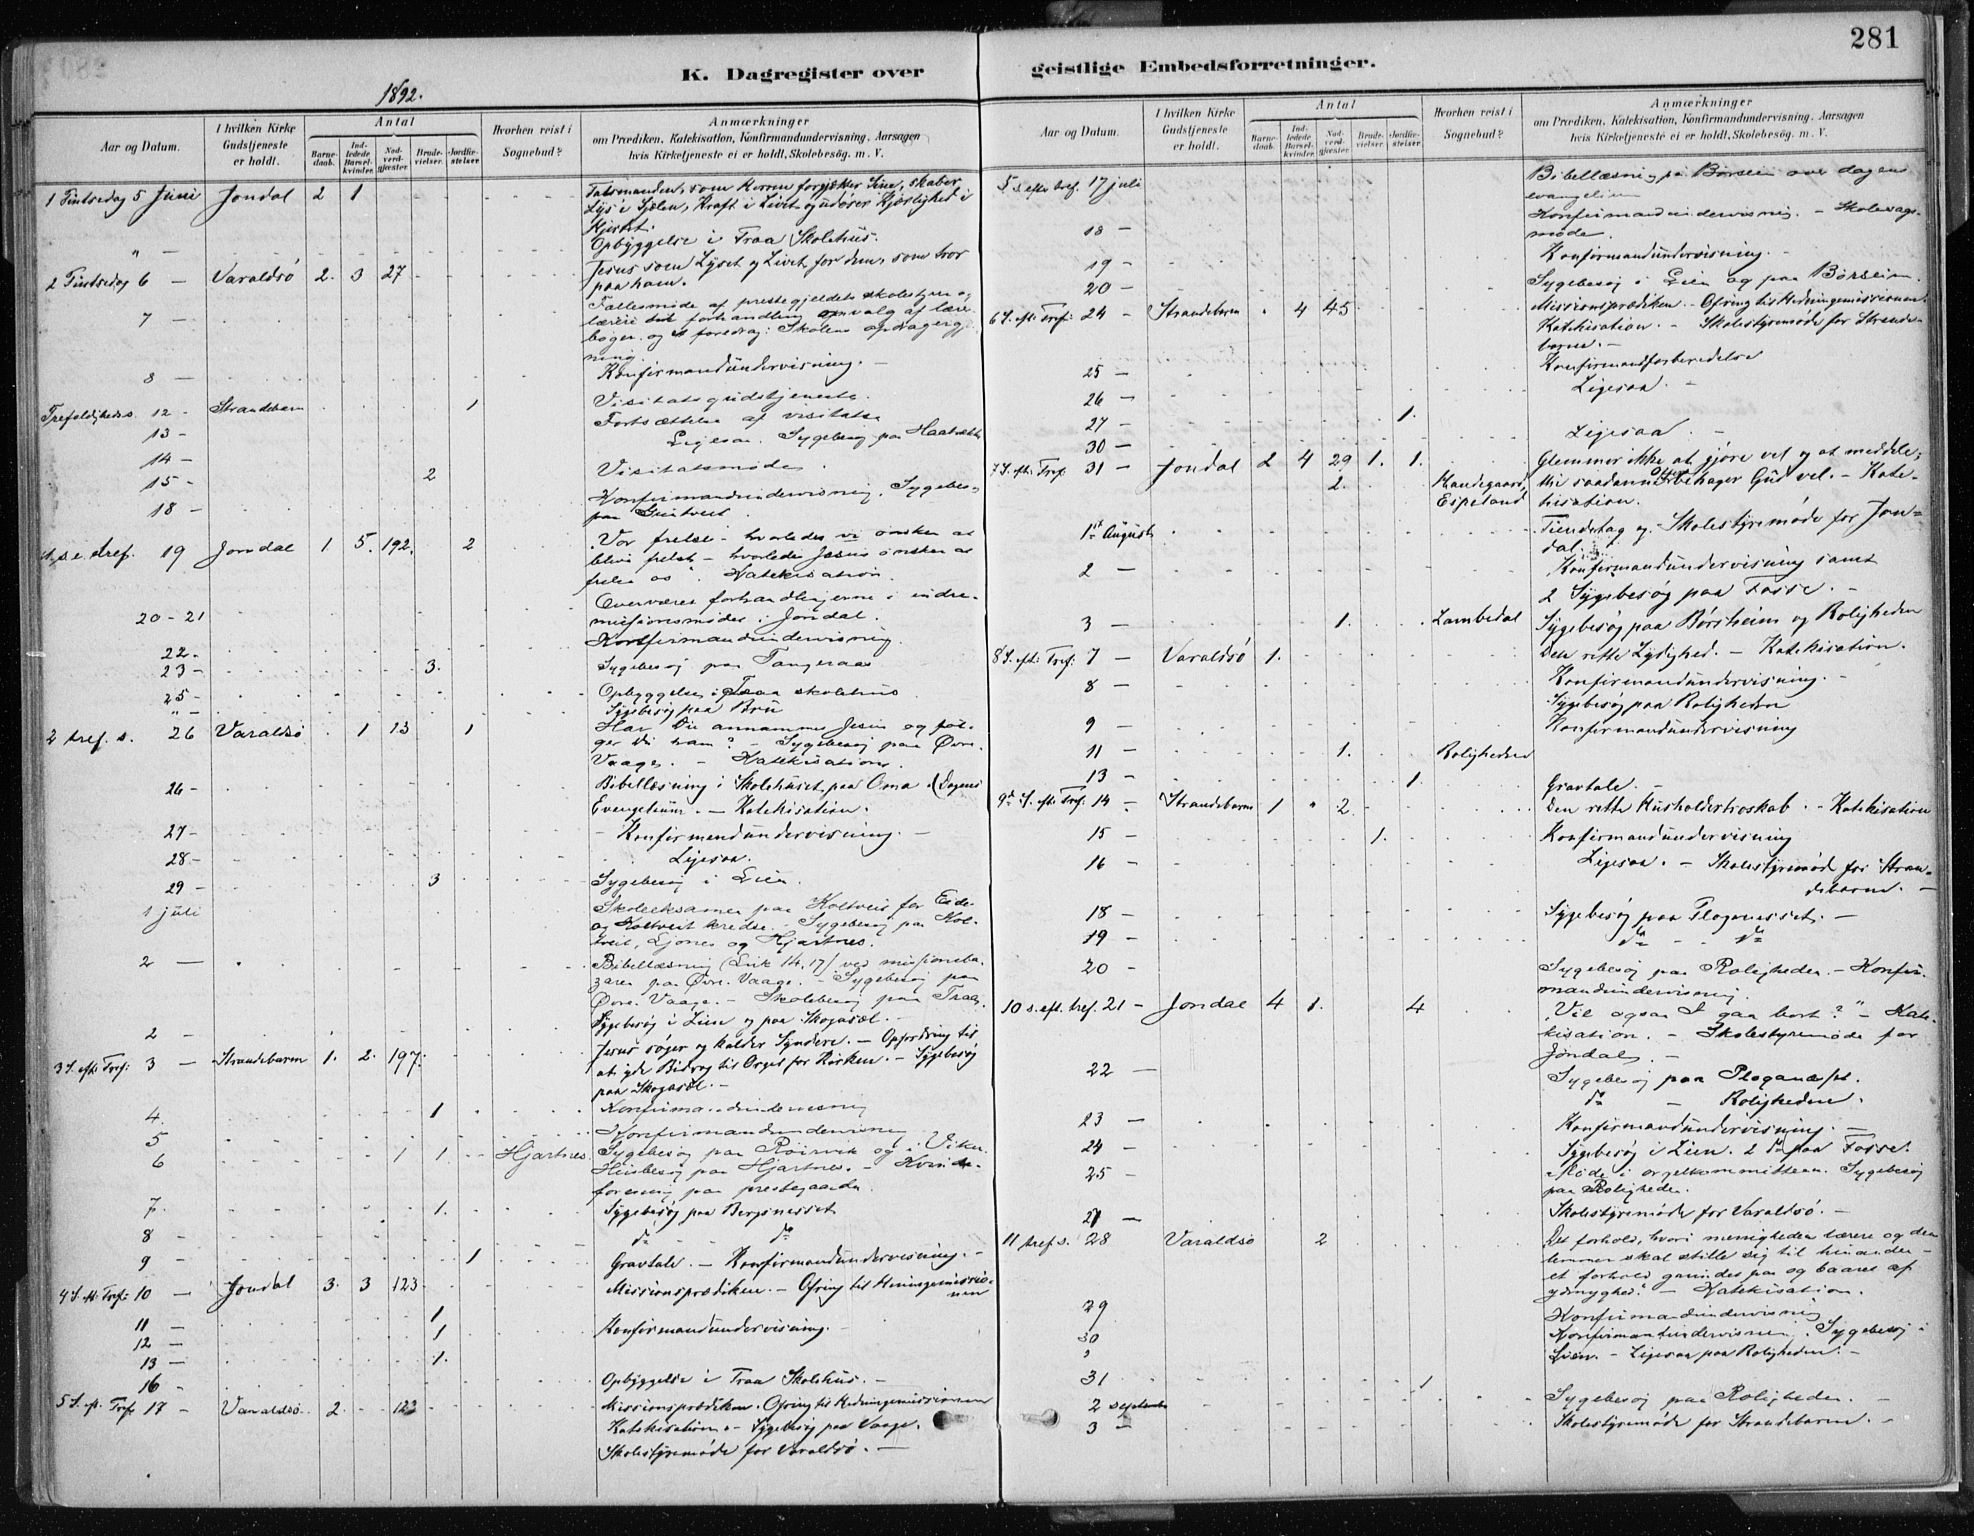 281
K. Dagregister over
geistlige Embedsforretninger.
1892.
Aar og Datum.
I hvilken Kirke Gudstjeneste er holdt.
Antal
Barnedaab.
Indledede Barselkvinder.
Nadverdgjæster
Brudevielser.
Jordfæstelser
Hvorhen reist i Sognebud?
Anmærkninger
om Prædiken, Katekisation, Konfirmandundervisning, Aarsagen
hvis Kirketjeneste ei er holdt, Skolebesøg. m. V.
1 Pintsedag 5 Juni Jondal 2 1 Talsmanden, som Herren forgjætter Sine, skaber
Lys i Sjælen, Kraft i Livet og udøser Kjærlighed i
Hjertet.
" — Opbyggelse i Traa Skolehus.
2 Pintsedag 6 — Varaldsö 2. 3 27 Jesus som Lyset og Livet for dem, som tror
paa ham.
7 — Fællesmøde af prestegjeldets skolestyre og
lærere forhandling valg af lære
bøger og et foredrag: Skolens opdragergj
ning.
8 — Konfirmandundervisning. —
Trefoldigheds. 12 - Strandebarm 1 Visitatsgudstjeneste.
13 - Fortsættelse af visitatsen
14 - Ligesaa. Sygebesøg paa
15 - 2 Visitatsmøde.
18 - Konfirmandundervisning. Sygebesøg
paa
1. s. e. tref. 19 Jondal 1 5. 192. 2 "Vor frelse - hvorledes vi ønsker at
blive frelst - hvorledes Jesus ønsker at
frelse os". Katekisation.
20 - 21 Overværet forhandlingerne i indre-
missionsmødet i Jondal.
22. - Konfirmandundervisning.
23 - 3. Sygebesøg paa Tangeraas
25 - Opbyggelse i Traa skolehus
" - Sygebesøg paa Bru
2 tref. s. 26 Varaldsö 1 13 1 Har Du annammet Jesus og føl-
ger Du ham? - Sygebesøg paa Øvre
Vaage. - Katekisation.
26 - Bibellæsning i Skolehuset paa Oma. (Dagens
Evangelium. - Katekisation.
27 - - Konfirmandundervisning. -
28 - Ligesaa.
29 - 3 Sygebesøg i Lien.
1 juli Skoleeksamen paa Koltveit for Eide
og Koltveit kredse. Sygebesøg paa Kol-
tveit, Ljones og Hjartnes.
2 — Bibellæsning (Luk 14, 17) ved missionsba-
zaren paa Øvre Vaage. - Sygebesøg paa
Øvre Vaage. - Skolebesøg paa Traa.
2 - Sygebesøg i Lien og paa Skogasæl. -
3 S. eft. Tref: 3 — Strandebarm 1. 2. 197. Jesus søger og kalder Syndere. - Opfordring til
at yde Bidrag til Orgel for Kirken. - Sygebesøg
paa Skogasæl. -
4. 1 Konfirmandundervisning
5 - Konfirmandundervisning
6 1 1 Hjartnes. Sygebesøg paa Röirvik og i Viken
Husbesøg paa Hjartnes. - Kvinde-
forening paa prestegaarden.
7. - 1. Sygebesøg paa Bergsnesset
8 - do do
9 - 1 Gravtale. - Konfirmandundervisning. -
4 S. eft. Tref: 10 — Jondal 3. 3 123 Missionsprædiken. - Ofring til Hedningemissio-
nen
11 — 1
12 — 1 Konfirmandundervisning. -
13 — 1.
16 - Opbyggelse i Traa Skolehus. -
5 S. eft. Tref 17 - Varaldsö. 2. 122 Missionsprædiken. Ofring til Hedningemissionen
Katekisation. - Sygebesøg paa Vaage.
Skolestyremøde for Varaldsö. -
Aar og Datum.
I hvilken Kirke Gudstjeneste er holdt.
Antal
Barnedaab.
Indledede Barselkvinder
Nadverdgjæster
Brudevielser.
Jordfæstelser.
Hvorhen reist i Sognebud?
Anmærkninger
om Prædiken, Katekisation, Konfirmandundervisning. Aarsagen
hvis Kirketjeneste ei er holdt, Skolebesøg. m. V.
5 s efter tref. 17 juli Bibellæsning paa Börsem over dagens
evangelium
18 — Konfirmandundervisning. - Skolesags-
møde.
19 — Konfirmandundervisning. -
20 — Sygebesøg i Lien og paa Börsem.
6 S. eft. Tref: 24 - Strandebarm " 4 45 Missionsprædiken. - Ofring til Hedningemissionen.
Katekisation. - Skolestyremøde for Strande-
barm. -
25 — Konfirmandforberedelse
26 — Ligesaa. -
27 — 1.
30 — Ligesaa. -
7 S. eft. Tref 31 — Jondal 2 4 29 1. 1. Glemmer ikke at gjøre vel og at meddele;
2. Haudegaard, Espeland thi saadanne Offere behager Gud vel. - Kate-
kisation.
1ste August Tiendetag og Skolestyremøde for Jon-
dal.
2 — Konfirmandundervisning samt
2 Sygebesøg paa Fosse. -
3 — 1. Lambedal Sygebesøg paa Börsheim og Roligheden
8 S. eft. Tref: 7 — Varaldsö 1. Den rette Lydighed. - Katekisation.
8 — Konfirmandundervisning. -
Sygebesøg paa Roligheden
9 — Konfirmandundervisning
11 — 1. Roligheden
13 — 1 Gravtale. -
9de S. eft. Tref: 14 - Strandebarm 1 " 2 Den rette Husholdertroskab. - Katekisation
15 — 1. Konfirmandundervisning
16 — Ligesaa. - Skolestyremøde for Stran-
debarm. -
18 — Sygebesøg paa Ploganesset. -
19 — do - - do
20 — Sygebesøg paa Roligheden. - Konfir-
mandundervisning.
10 s. eft. tref. 21 - Jondal 4 1. 4 "Vil ogsaa I gaa bort?" - Kate-
kisation. - Skolestyremøde for
Jondal. -
22 — Sygebesøg paa Ploganesset.
do — Roligheden.
23 — Konfirmandundervisning. -
24 — Sygebesøg i Lien. 2 do paa Fosse.
25 — Møde i orgelkommitteen. Sygebesøg
paa Roligheden.
27 — Skolestyremøde for Varaldsö. -
11 tref s. 28 Varaldsö 2 Det forhold, hvori menighedens lærere og dens
lemmer skal stille sig til hinanden -
et forhold grundet paa og baaret af
ydmyghed." - Katekisation.
29 Konfirmandundervisning
30 Konfirmandundervisning. Sygebesøg i
Lien. - Ligesaa paa Roligheden. -
31 1
2 september Sygebesøg paa Roligheden. -
3 — Skolestyremøde for Strandebarm. -